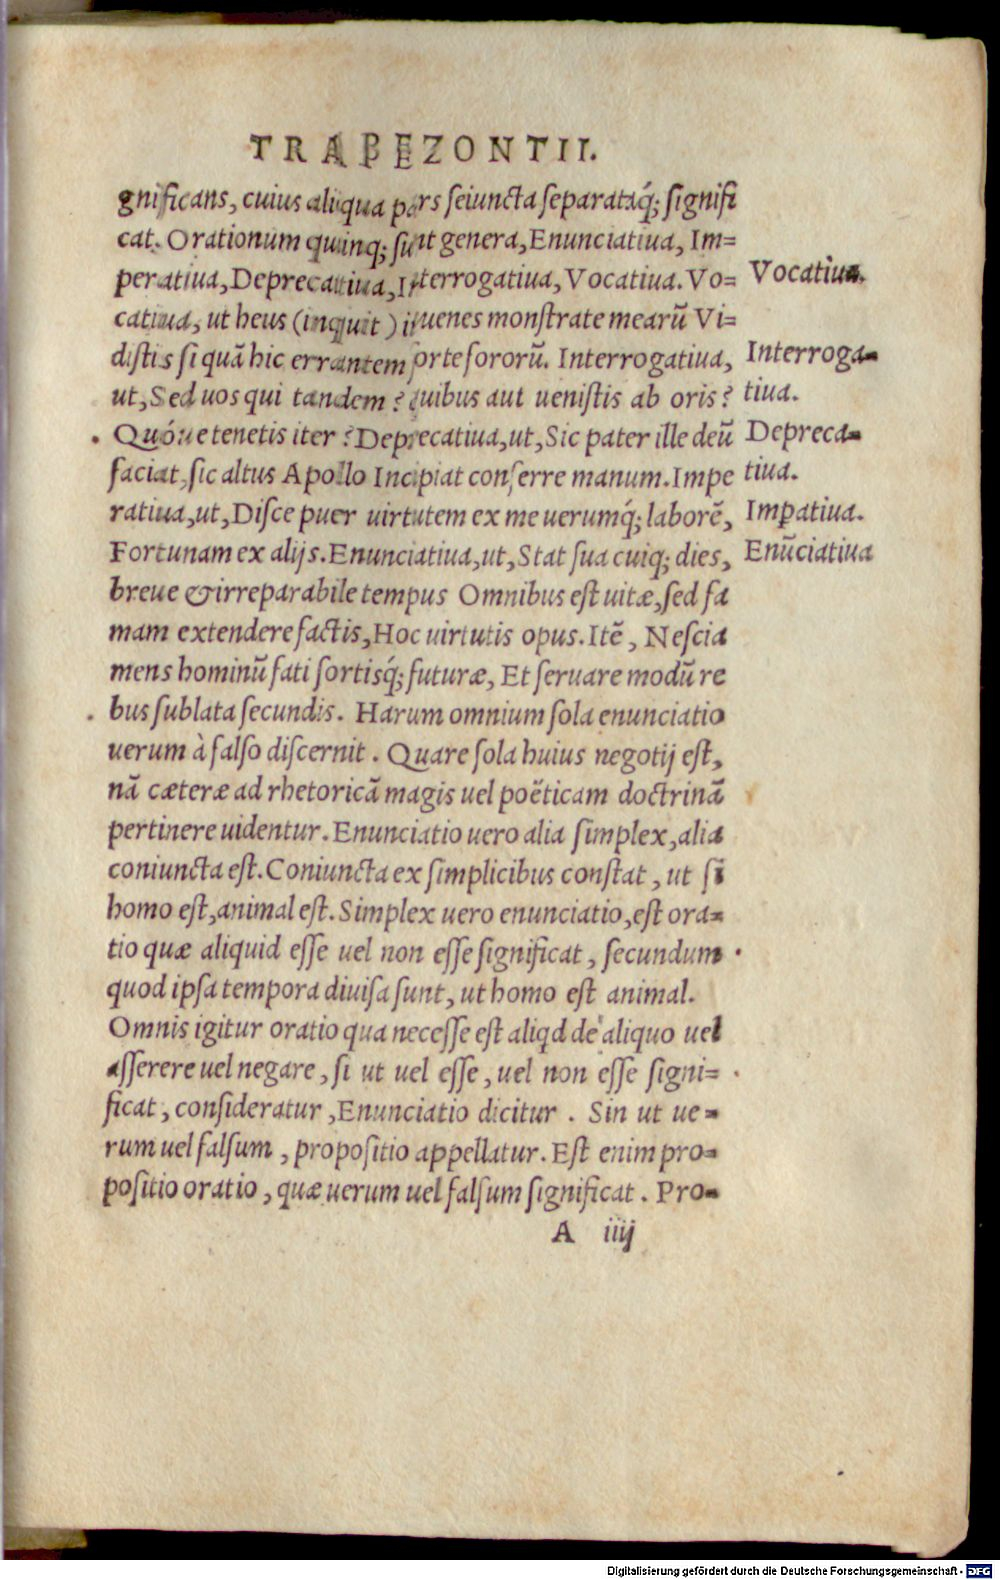 TRAPEZONTII.
gnificans, cuius aliqua pars seiuncta separataq́; signifi
cat. Orationum quinq; sunt genera, Enunciatiua, Im=
peratiua, Deprecatiua, Interrogatiua, Vocatiua. Vo=
Vocatiua.
catiua, ut heus (inquit) iuuenes monstrate mearū Vi=
distis si quā hic errantem forte sororū. Interrogatiua,
Interroga=
ut, Sed uos qui tandem? quibus aut uenistis ab oris?
tiua.
Quóue tenetis iter? Deprecatiua, ut, Sic pater ille deū
Depreca=
faciat, sic altus Apollo Incipiat conferre manum. Impe
tiua.
ratiua, ut, Disce puer uirtutem ex me uerumq́; laborē,
Imꝑatiua.
Fortunam ex alijs. Enunciatiua, ut, Stat sua cuiq; dies,
Enūciatiua
breue & irreparabile tempus Omnibus est uitæ, sed fa
mam extendere factis, Hoc uirtutis opus. Itē, Nescia
mens hominū fati sortisq́; futuræ, Et seruare modū re
bus sublata secundis. Harum omnium sola enunciatio
uerum à falso discernit. Quare sola huius negotij est,
nā cæteræ ad rhetoricā magis uel poëticam doctrinā
pertinere uidentur. Enunciatio uero alia simplex, alia
coniuncta est. Coniuncta ex simplicibus constat, ut si
homo est, animal est. Simplex uero enunciatio, est ora=
tio quæ aliquid esse uel non esse significat, secundum
quod ipsa tempora diuisa sunt, ut homo est animal.
Omnis igitur oratio qua necesse est aliqd de aliquo uel
asserere uel negare, si ut uel esse, uel non esse signi=
ficat, consideratur, Enunciatio dicitur. Sin ut ue=
rum uel falsum, propositio appellatur. Est enim pro=
positio oratio, quæ uerum uel falsum significat. Pro=
A iiij
Digitalisierung gefördert durch die Deutsche Forschungsgemeinschaft - DFG